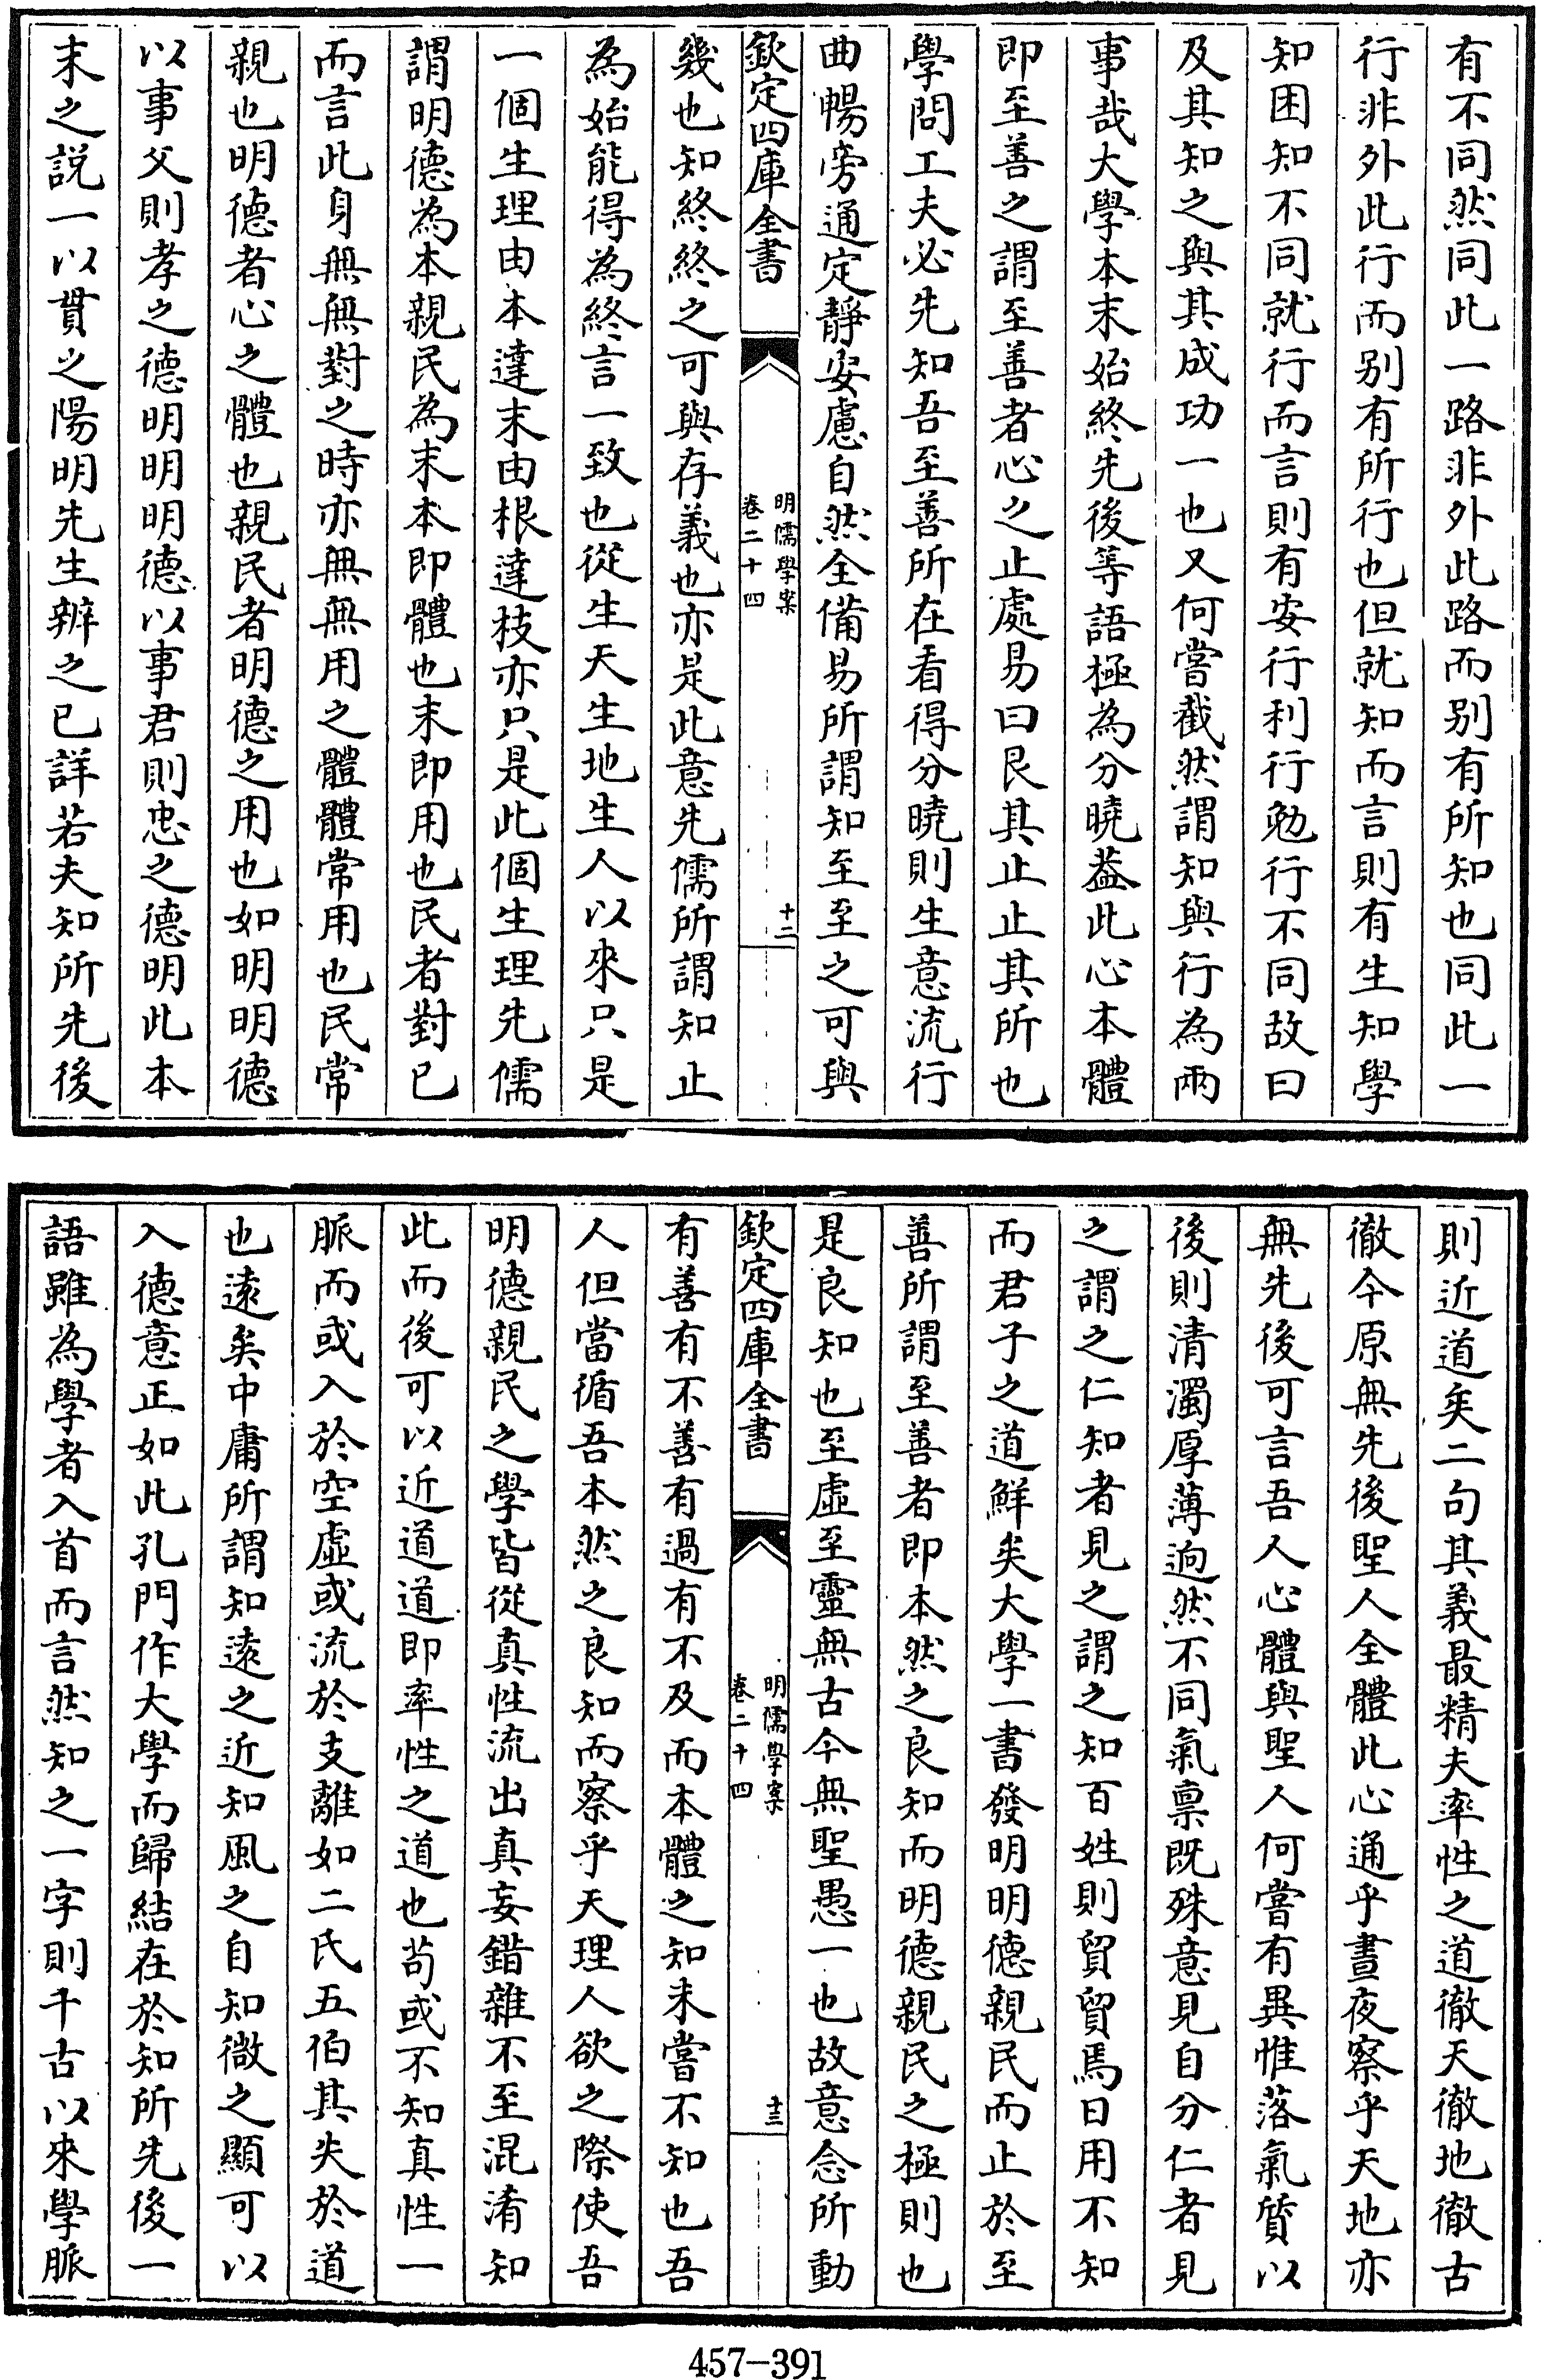 有不同然同此一路非外此路而别有所知也同此一
行非外此行而别有所行也但就知而言則有生知學
知困知不同就行而言則有安行利行勉行不同故曰
及其知之與其成功一也又何嘗截然謂知與行為兩
事哉大學本末始終先後等語極為分曉葢此心本體
即至善之謂至善者心之止處易曰艮其止止其所也
學問工夫必先知吾至善所在看得分曉則生意流行
曲暢旁通定靜安慮自然全備易所謂知至至之可與
欽定四庫全書
明儒學案
卷二十四
十二
幾也知終終之可與存義也亦是此意先儒所謂知止
為始能得為終言一致也從生天生地生人以來只是
一個生理由本達末由根達枝亦只是此個生理先儒
謂明德為本親民為末本即體也末即用也民者對已
而言此身無無對之時亦無無用之體體常用也民常
親也明德者心之體也親民者明德之用也如明明德
以事父則孝之德明明明德以事君則忠之德明此本
末之説一以貫之陽明先生辨之已詳若夫知所先後
則近道矣二句其義最精夫率性之道徹天徹地徹古
徹今原無先後聖人全體此心通乎晝夜察乎天地亦
無先後可言吾人心體與聖人何嘗有異惟落氣質以
後則清濁厚薄逈然不同氣禀既殊意見自分仁者見
之謂之仁知者見之謂之知百姓則貿貿焉日用不知
而君子之道鮮矣大學一書發明明德親民而止於至
善所謂至善者即本然之良知而明德親民之極則也
是良知也至虛至靈無古今無聖愚一也故意念所動
欽定四庫全書
明儒學案
卷二十四
十三
有善有不善有過有不及而本體之知未嘗不知也吾
人但當循吾本然之良知而察乎天理人欲之際使吾
明德親民之學皆從真性流出真妄錯雜不至混淆知
此而後可以近道道即率性之道也苟或不知真性一
脈而或入於空虛或流於支離如二氏五伯其失於道
也遠矣中庸所謂知遠之近知風之自知微之顯可以
入德意正如此孔門作大學而歸結在於知所先後一
語雖為學者入首而言然知之一字則千古以來學脈
457-391